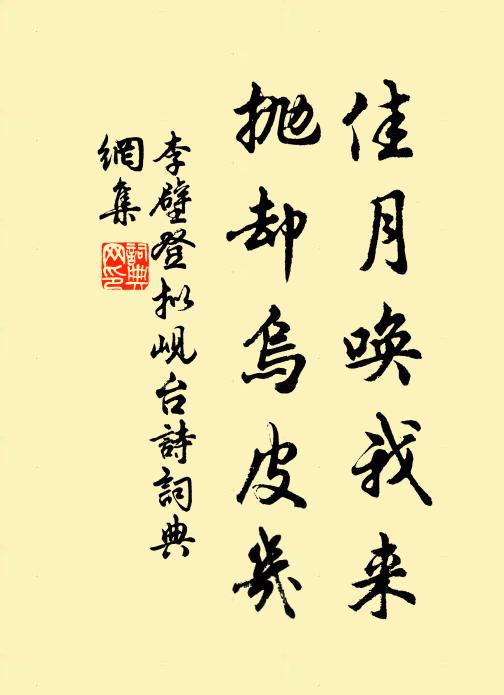 佳月唤我来
抛却乌皮几
李壁登拟岘台詩詞典
網集
詞典网印